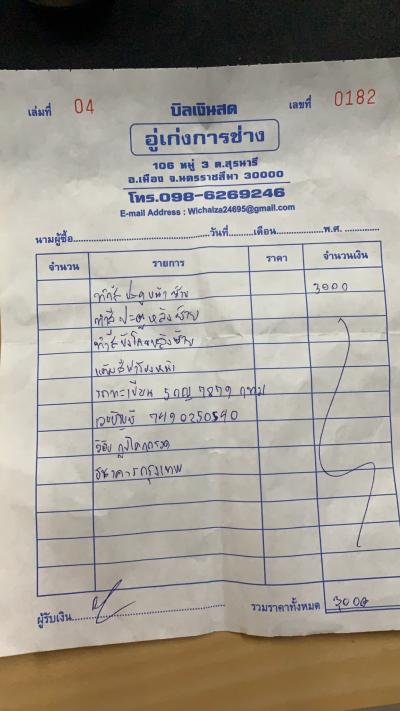 เล่มที่ 04 บิลเงินสด เลขที่ 0182
อู่เก่งการช่าง
106 หมู่ 3 ต.สุรนารี
อ.เมือง จ.นครราชสีมา 30000
โทร.098-6269246
E-mail Address : Wichaiza24695@gmail.com
นามผู้ซื้อ วันที่ เดือน พ.ศ.
จำนวน รายการ ราคา จำนวนเงิน
ทำสีประตูหน้าซ้าย 3000
ทำสีประตูหลังซ้าย
ทำสีบังโคลนหลังซ้าย
แต้มสีฝากระโปรงหน้า
รถทะเบียน 5กญ 7879 กทม
เลขบัญชี 7490250540
วิชัย
ธนาคารกรุงเทพ
ผู้รับเงิน รวมราคาทั้งหมด 3000